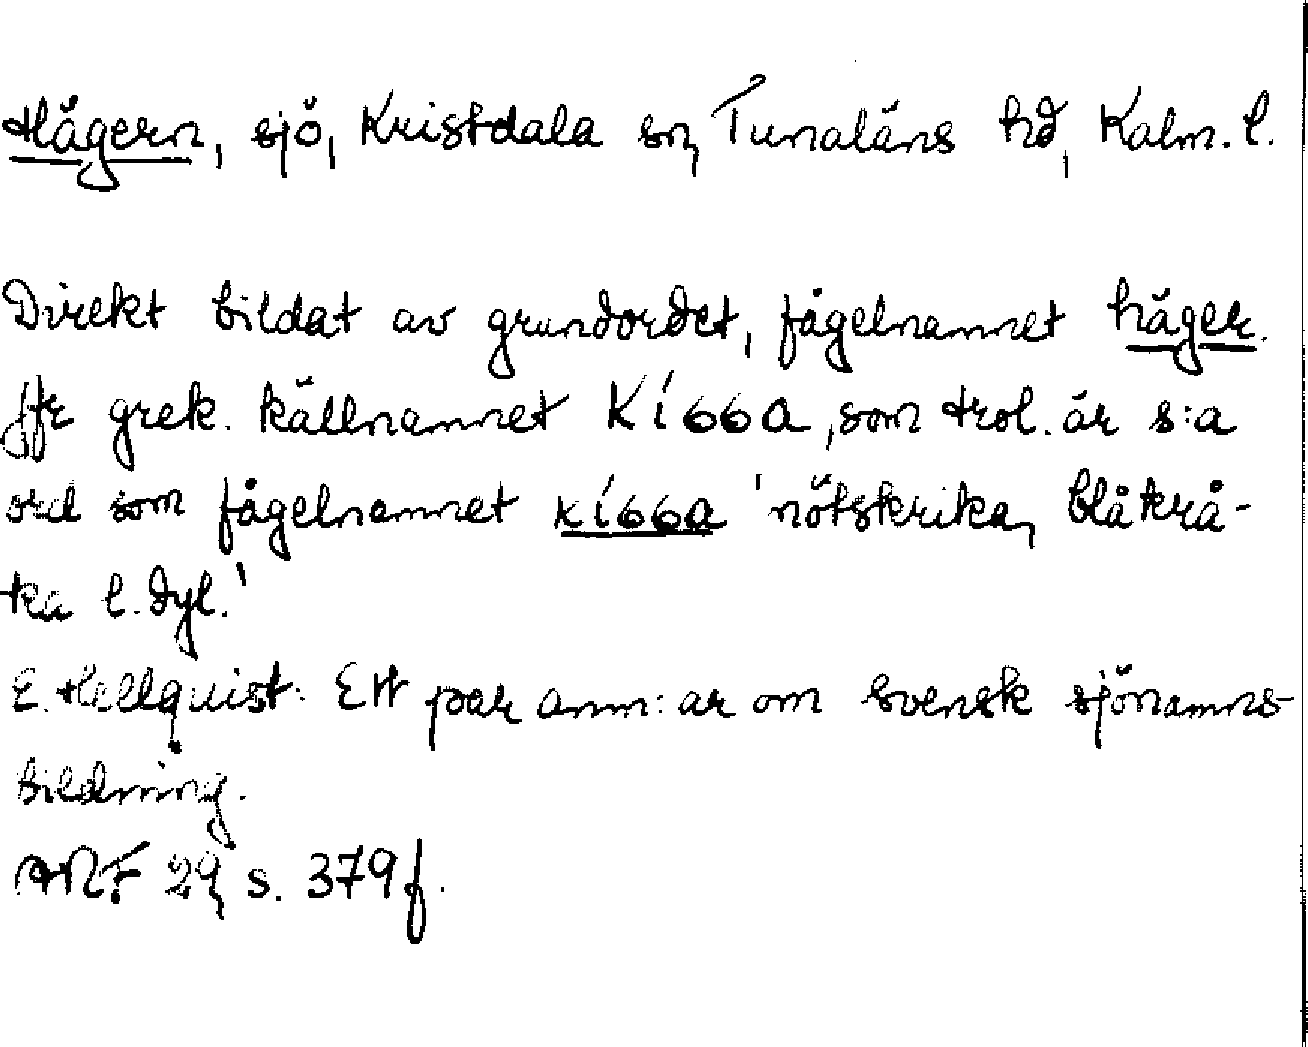 Hägern, sjö, Kristdala sn, Tunaläns hd, Kalm. l.
Direkt bildat av grundordet, fågelnamnet häger.
Jfr grek. källnamnet Κίσσα, som trol. är s:a
ord som fågelnamnet κίσσα 'nötskrika, blåkrå-
ka l. dyl.'
E. Hellquist: Ett par anm:ar om svensk sjönamns-
bildning.
ANF 29, s. 379 f.